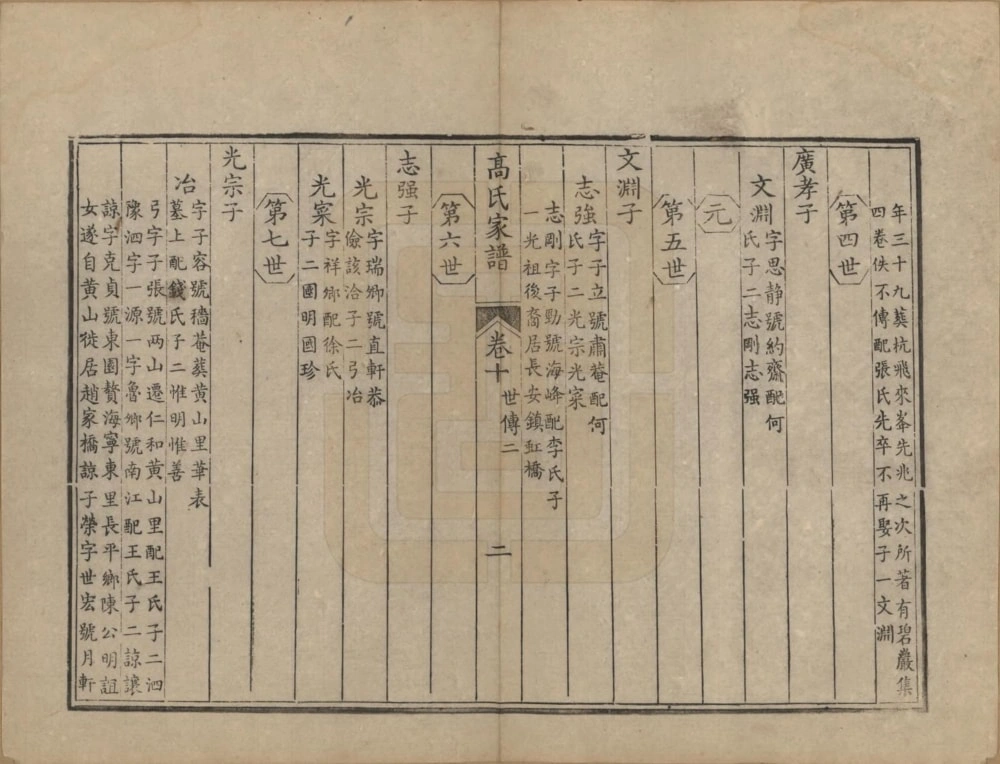 年三十九葬杭飛來峯先兆之次所著有碧巖集
四卷佚不傳配張氏先卒不再娶子一文淵
第四世
廣孝子
文淵字思静號約齋配何
氏子二志剛志强
元
第五世
文淵子
志強字子立號肅菴配何
氏子二光宗光寀
志剛字子勁號海峰配李氏子
一光祖後裔居長安鎮虹橋
高氏家譜 卷十 世傳二 二
第六世
志强子
光宗字瑞卿號直軒恭
儉該洽子二弓冶
光寀字祥卿配徐氏
子二國明國珍
第七世
光宗子
冶字子容號穡菴葬黄山里華表
墓上配錢氏子二惟明惟善
弓字子張號两山遷仁和黄山里配王氏子二泗
隊泗字一源一字魯鄉號南江配王氏子二諒讓
諒字克貞號東園贅海寧東里長平鄉陳公明誼
女遂自黄山徙居趙家橋諒子榮字世宏號月軒